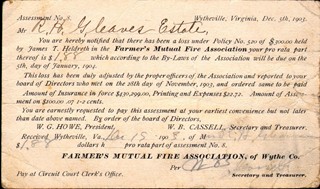 Assessment No. 8. Wytheville, Virginia, Dec. 5th, 1903.
Mr R. H. Gleaves Estate,
You are hereby notified that there has been a loss under Policy No. 520 of $300.00 held
by James T. Heldreth in the Farmer's Mutual Fire Association, your pro rata part
thereof is $1.88 which according to the By-Laws of the Association will be due on the
5th day of January, 1904.
This loss has been duly adjusted by the proper officers of the Association and reported to your
board of Directors who met on the 28th day of November, 1903, and ordered same to be paid
Amount of Insurance in force $ Amount of
ment on $100.00
You are earnestly requested to pay this assessment at your earliest convenience but not later
than date above named. By order of the board of Directors.
W. G. HOWE, President, W. B. CASSELL, Secretary and Treasurer.
Received, Wytheville, Va. Dec 15 1903, of
$1.88 dollars pro rata part of assessment No. 8.
FARMER'S MUTUAL FIRE ASSOCIATION, of Wythe Co.
Per
Pay at Circuit Court Clerk's Office. Secretary and Treasurer.